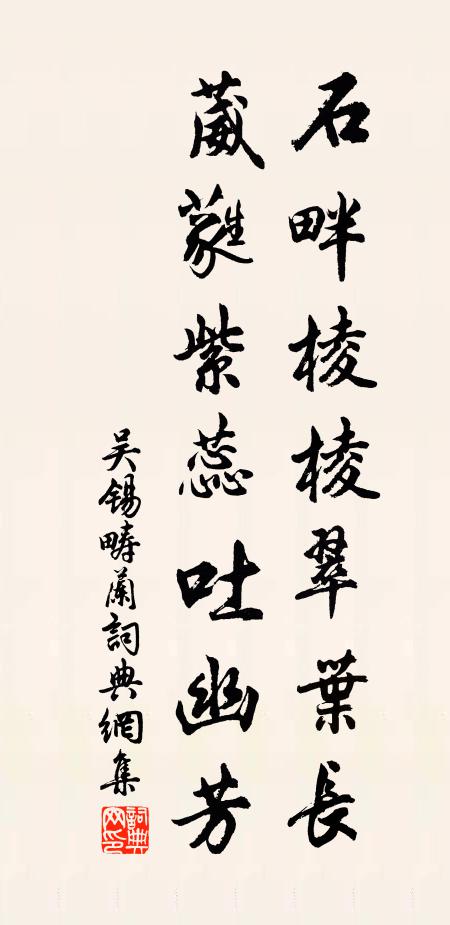 石畔棱棱翠葉長
葳蕤紫蕊吐幽芳
吴錫疇蘭詞典網集
詞典網印